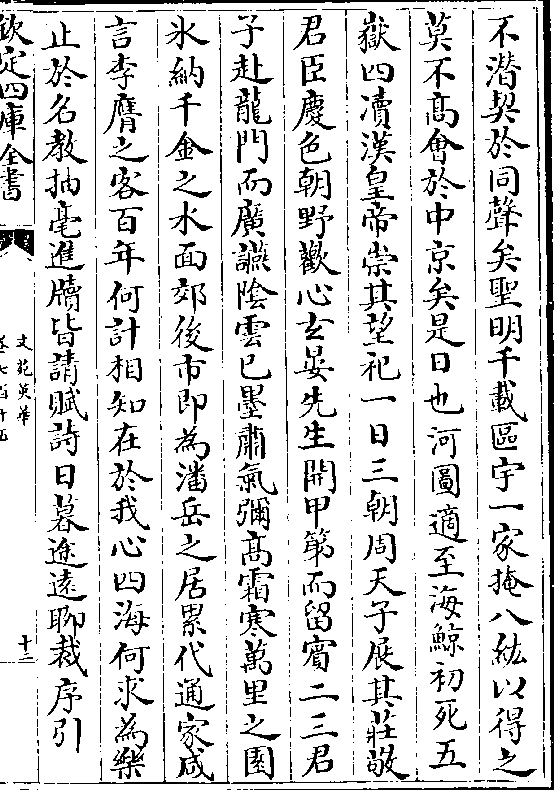 不潜契於同聲矣聖明千載區宇一家掩八紘以得之
莫不髙會於中京矣是日也河圖適至海鯨初死五
嶽四瀆漢皇帝崇其望祀一日三朝周天子展其莊敬
君臣慶色朝野歡心玄晏先生開甲第而留賓二三君
子赴龍門而廣讌隂雲已墨肅氣彌髙霜寒萬里之園
氷納千金之水面郊後市即為潘岳之居累代通家咸
言李膺之客百年何計相知在於我心四海何求為樂
止於名教抽毫進牘皆請賦詩日暮途逺聊裁序引
欽定四庫全書
文苑英華
卷七百十五
十二